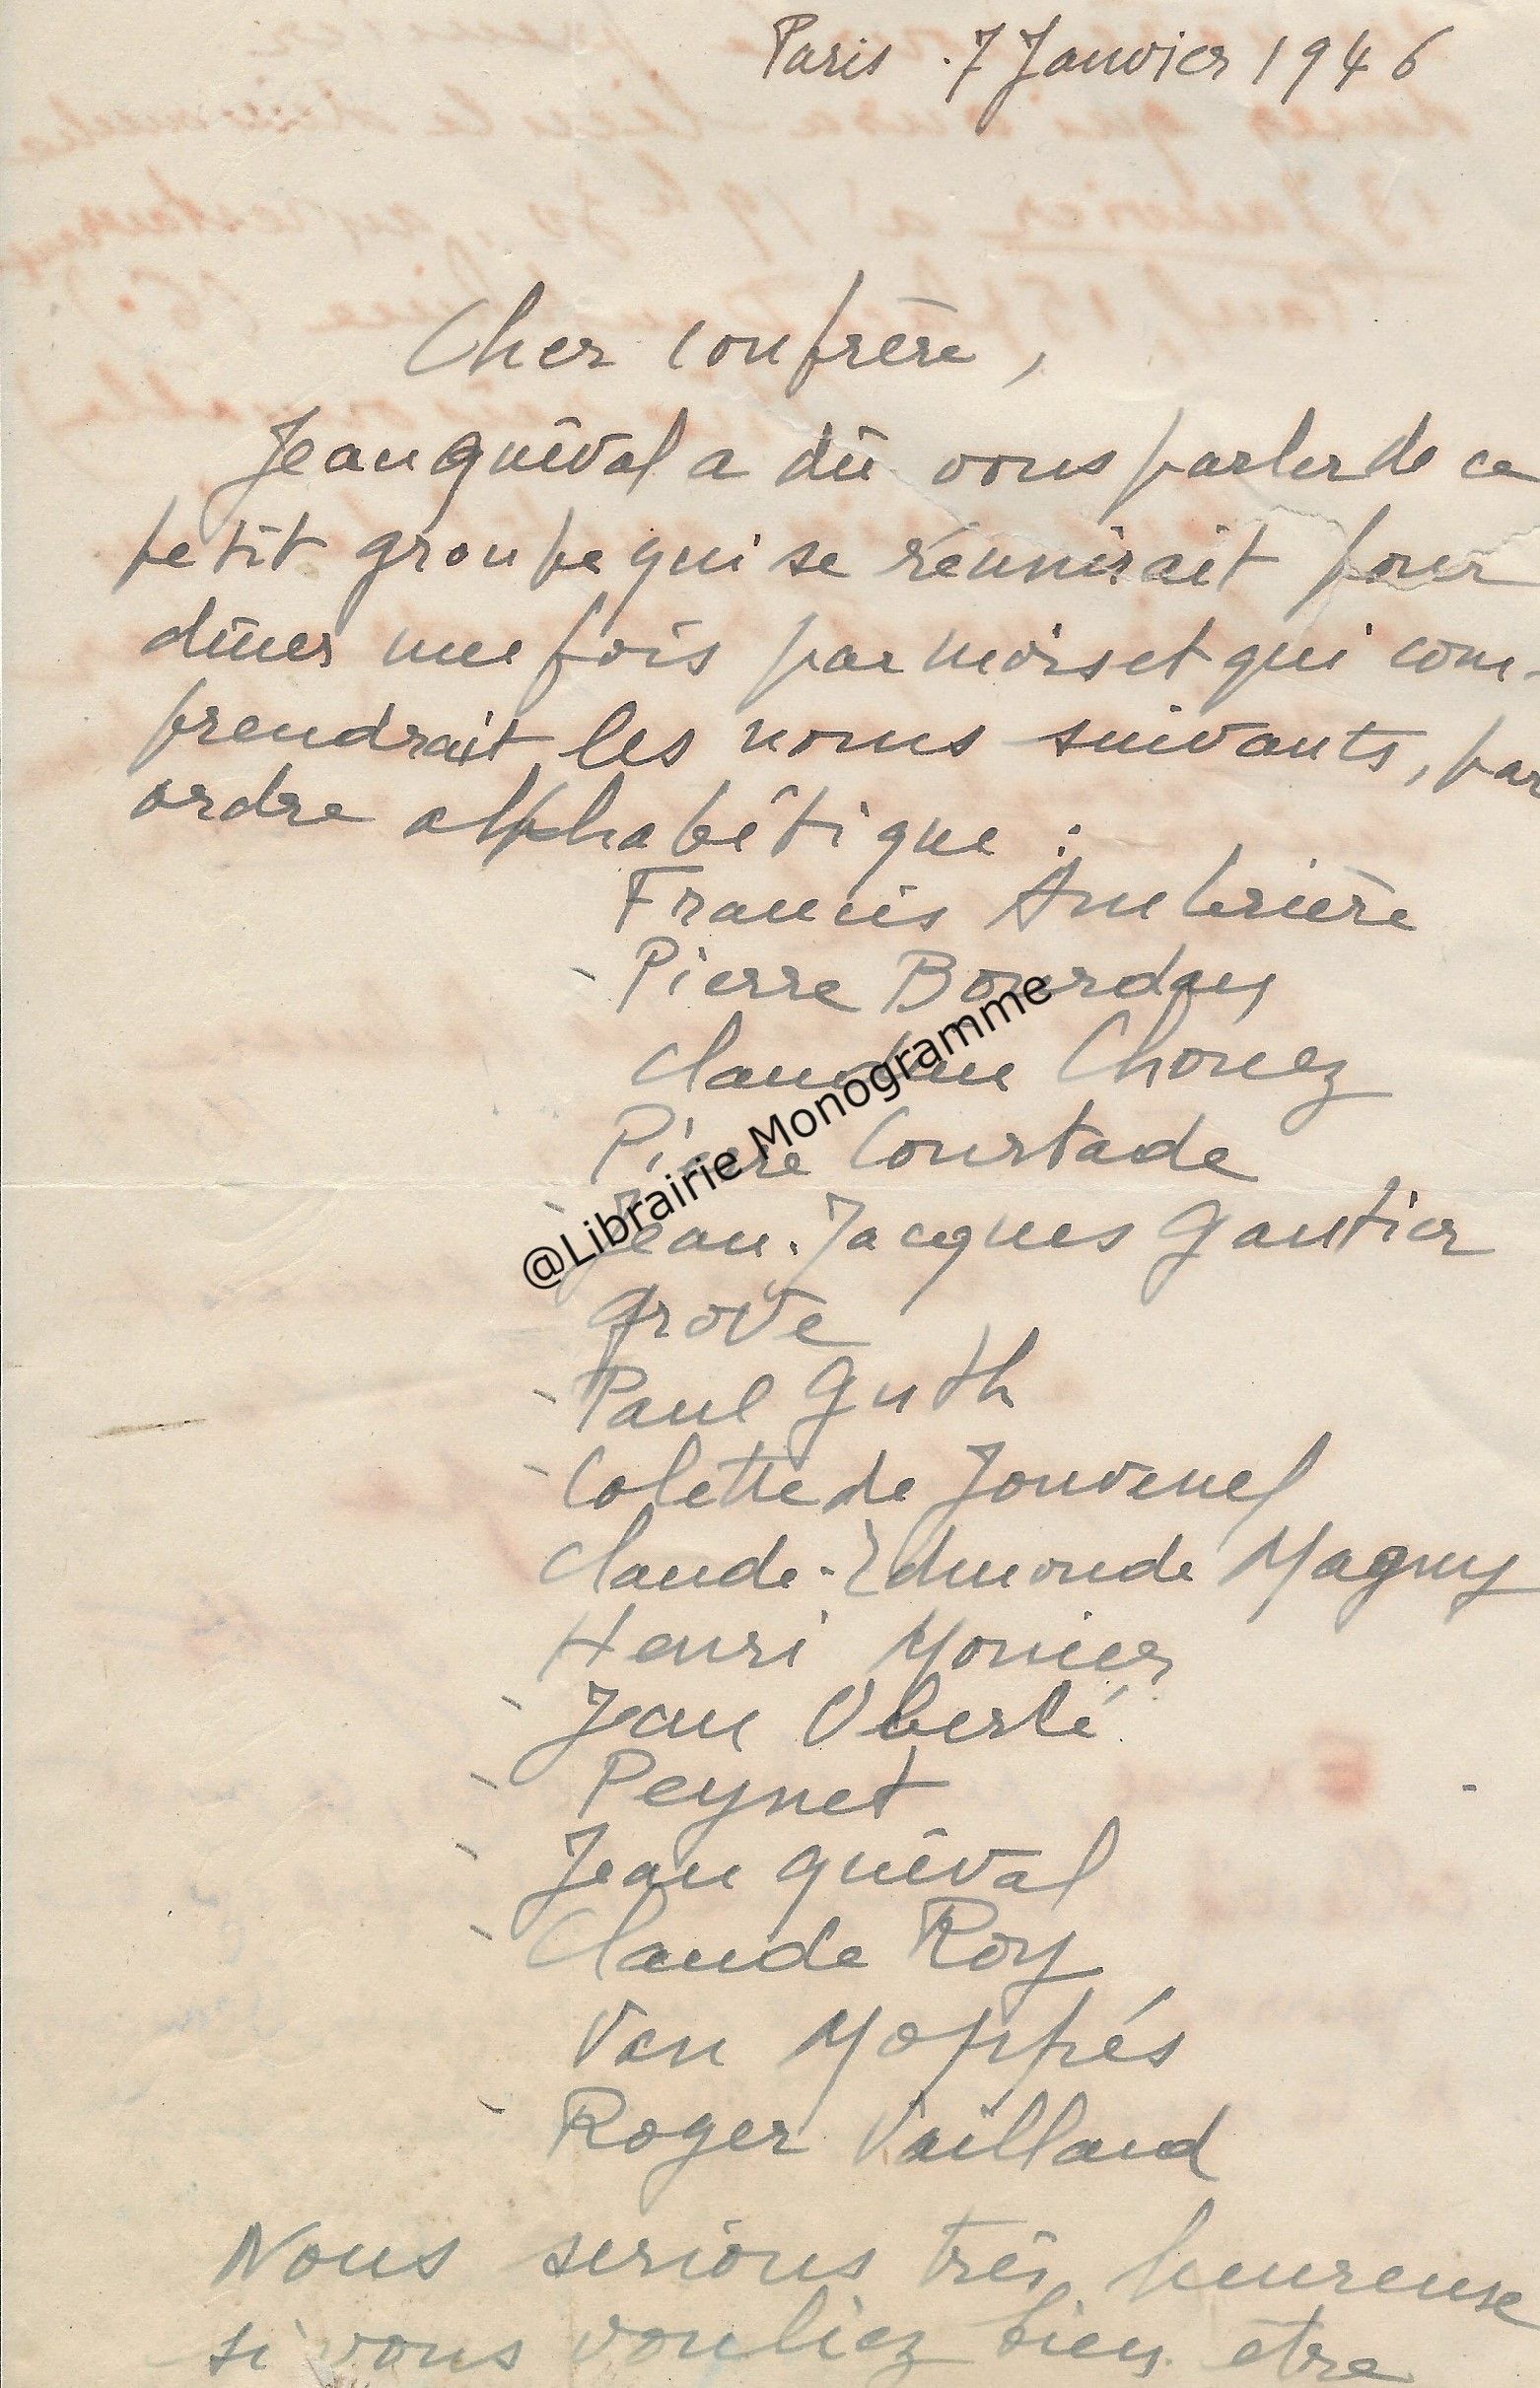 Paris . 7 Janvier 1946
Cher confrère,
Jean Quéval a dû vous parler de ce
petit groupe qui se réunirait pour
dîner une fois par mois et qui com-
prendrait les noms suivants, par
ordre alphabétique :
Francis Ambrière
- Pierre Bourdan
Claudine Chonez
Pierre Courtade
- Jean-Jacques Gautier
Grove
- Paul Guth
- Colette de Jouvenel
Claude-Edmonde Magny
Henri Monier
- Jean Oberlé
- Peynet
- Jean Quéval
- Claude Roy
Van Moppés
- Roger Vailland
Nous serions très heureux
si vous vouliez bien être
@Librairie Monogramme